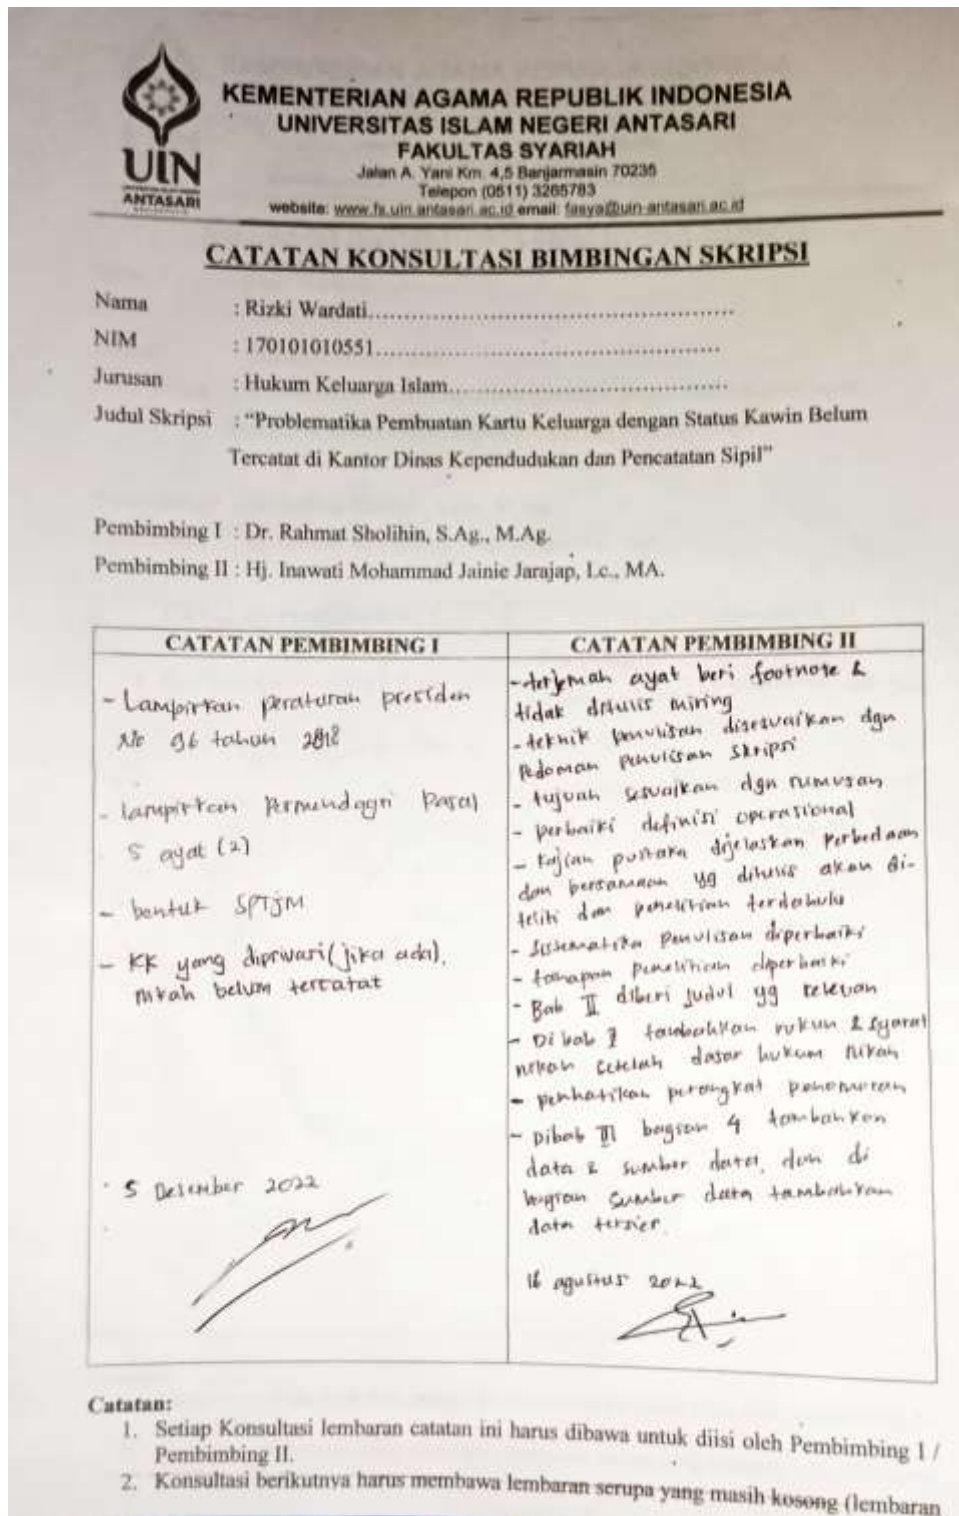 UIN
ANTASARI
KEMENTERIAN AGAMA REPUBLIK INDONESIA
UNIVERSITAS ISLAM NEGERI ANTASARI
FAKULTAS SYARIAH
Jalan A. Yani Km. 4,5 Banjarmasin 70235
Telepon (0511) 3265783
website: www.fs.uin.antasari.ac.id email: fasya@uin-antasari.ac.id
CATATAN KONSULTASI BIMBINGAN SKRIPSI
Nama : Rizki Wardati
NIM : 170101010551
Jurusan : Hukum Keluarga Islam
Judul Skripsi : "Problematika Pembuatan Kartu Keluarga dengan Status Kawin Belum
Tercatat di Kantor Dinas Kependudukan dan Pencatatan Sipil"
Pembimbing I : Dr. Rahmat Sholihin, S.Ag., M.Ag.
Pembimbing II : Hj. Inawati Mohammad Jainie Jarajap, Lc., MA.
CATATAN PEMBIMBING I
- Lampirkan peraturan presiden
No 96 tahun 2018
- lampirkan Permendagri Pasal
5 ayat (2)
- bentuk SPTJM
- KK yang (jika ada),
nikah belum tercatat
5 Desember 2022
CATATAN PEMBIMBING II
- terjemah ayat beri footnote &
tidak ditulis miring
- teknik penulisan disesuaikan dgn
Pedoman penulisan skripsi
- tujuan sesuaikan dgn rumusan
- perbaiki definisi operasional
- kajian pustaka dijelaskan perbedaan
dan persamaan yg ditulis akan di-
teliti dan penelitian terdahulu
- Sistematika penulisan diperbaiki
- tahapan penelitian diperbaiki
- Bab II diberi judul yg relevan
- Di bab tambahkan rukun & syarat
nikah setelah dasar hukum nikah
- perhatikan perangkat penomoran
- Dibab III bagian 4 tambahkan
data & sumber data, dan di
bagian sumber data tambahkan
data tersier.
16 agustus 2022
Catatan:
1. Setiap Konsultasi lembaran catatan ini harus dibawa untuk diisi oleh Pembimbing I /
Pembimbing II.
2. Konsultasi berikutnya harus membawa lembaran serupa yang masih kosong (lembaran